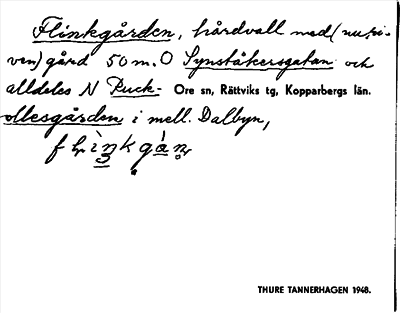 Flinkgården, hårdvall med (nu ri-
ven) gård 50 m. O Synståkersgatan och
alldeles N Puck- Ore sn, Rättviks tg, Kopparbergs län.
ollesgården i mell. Dalbyn,
THURE TANNERHAGEN 1948.